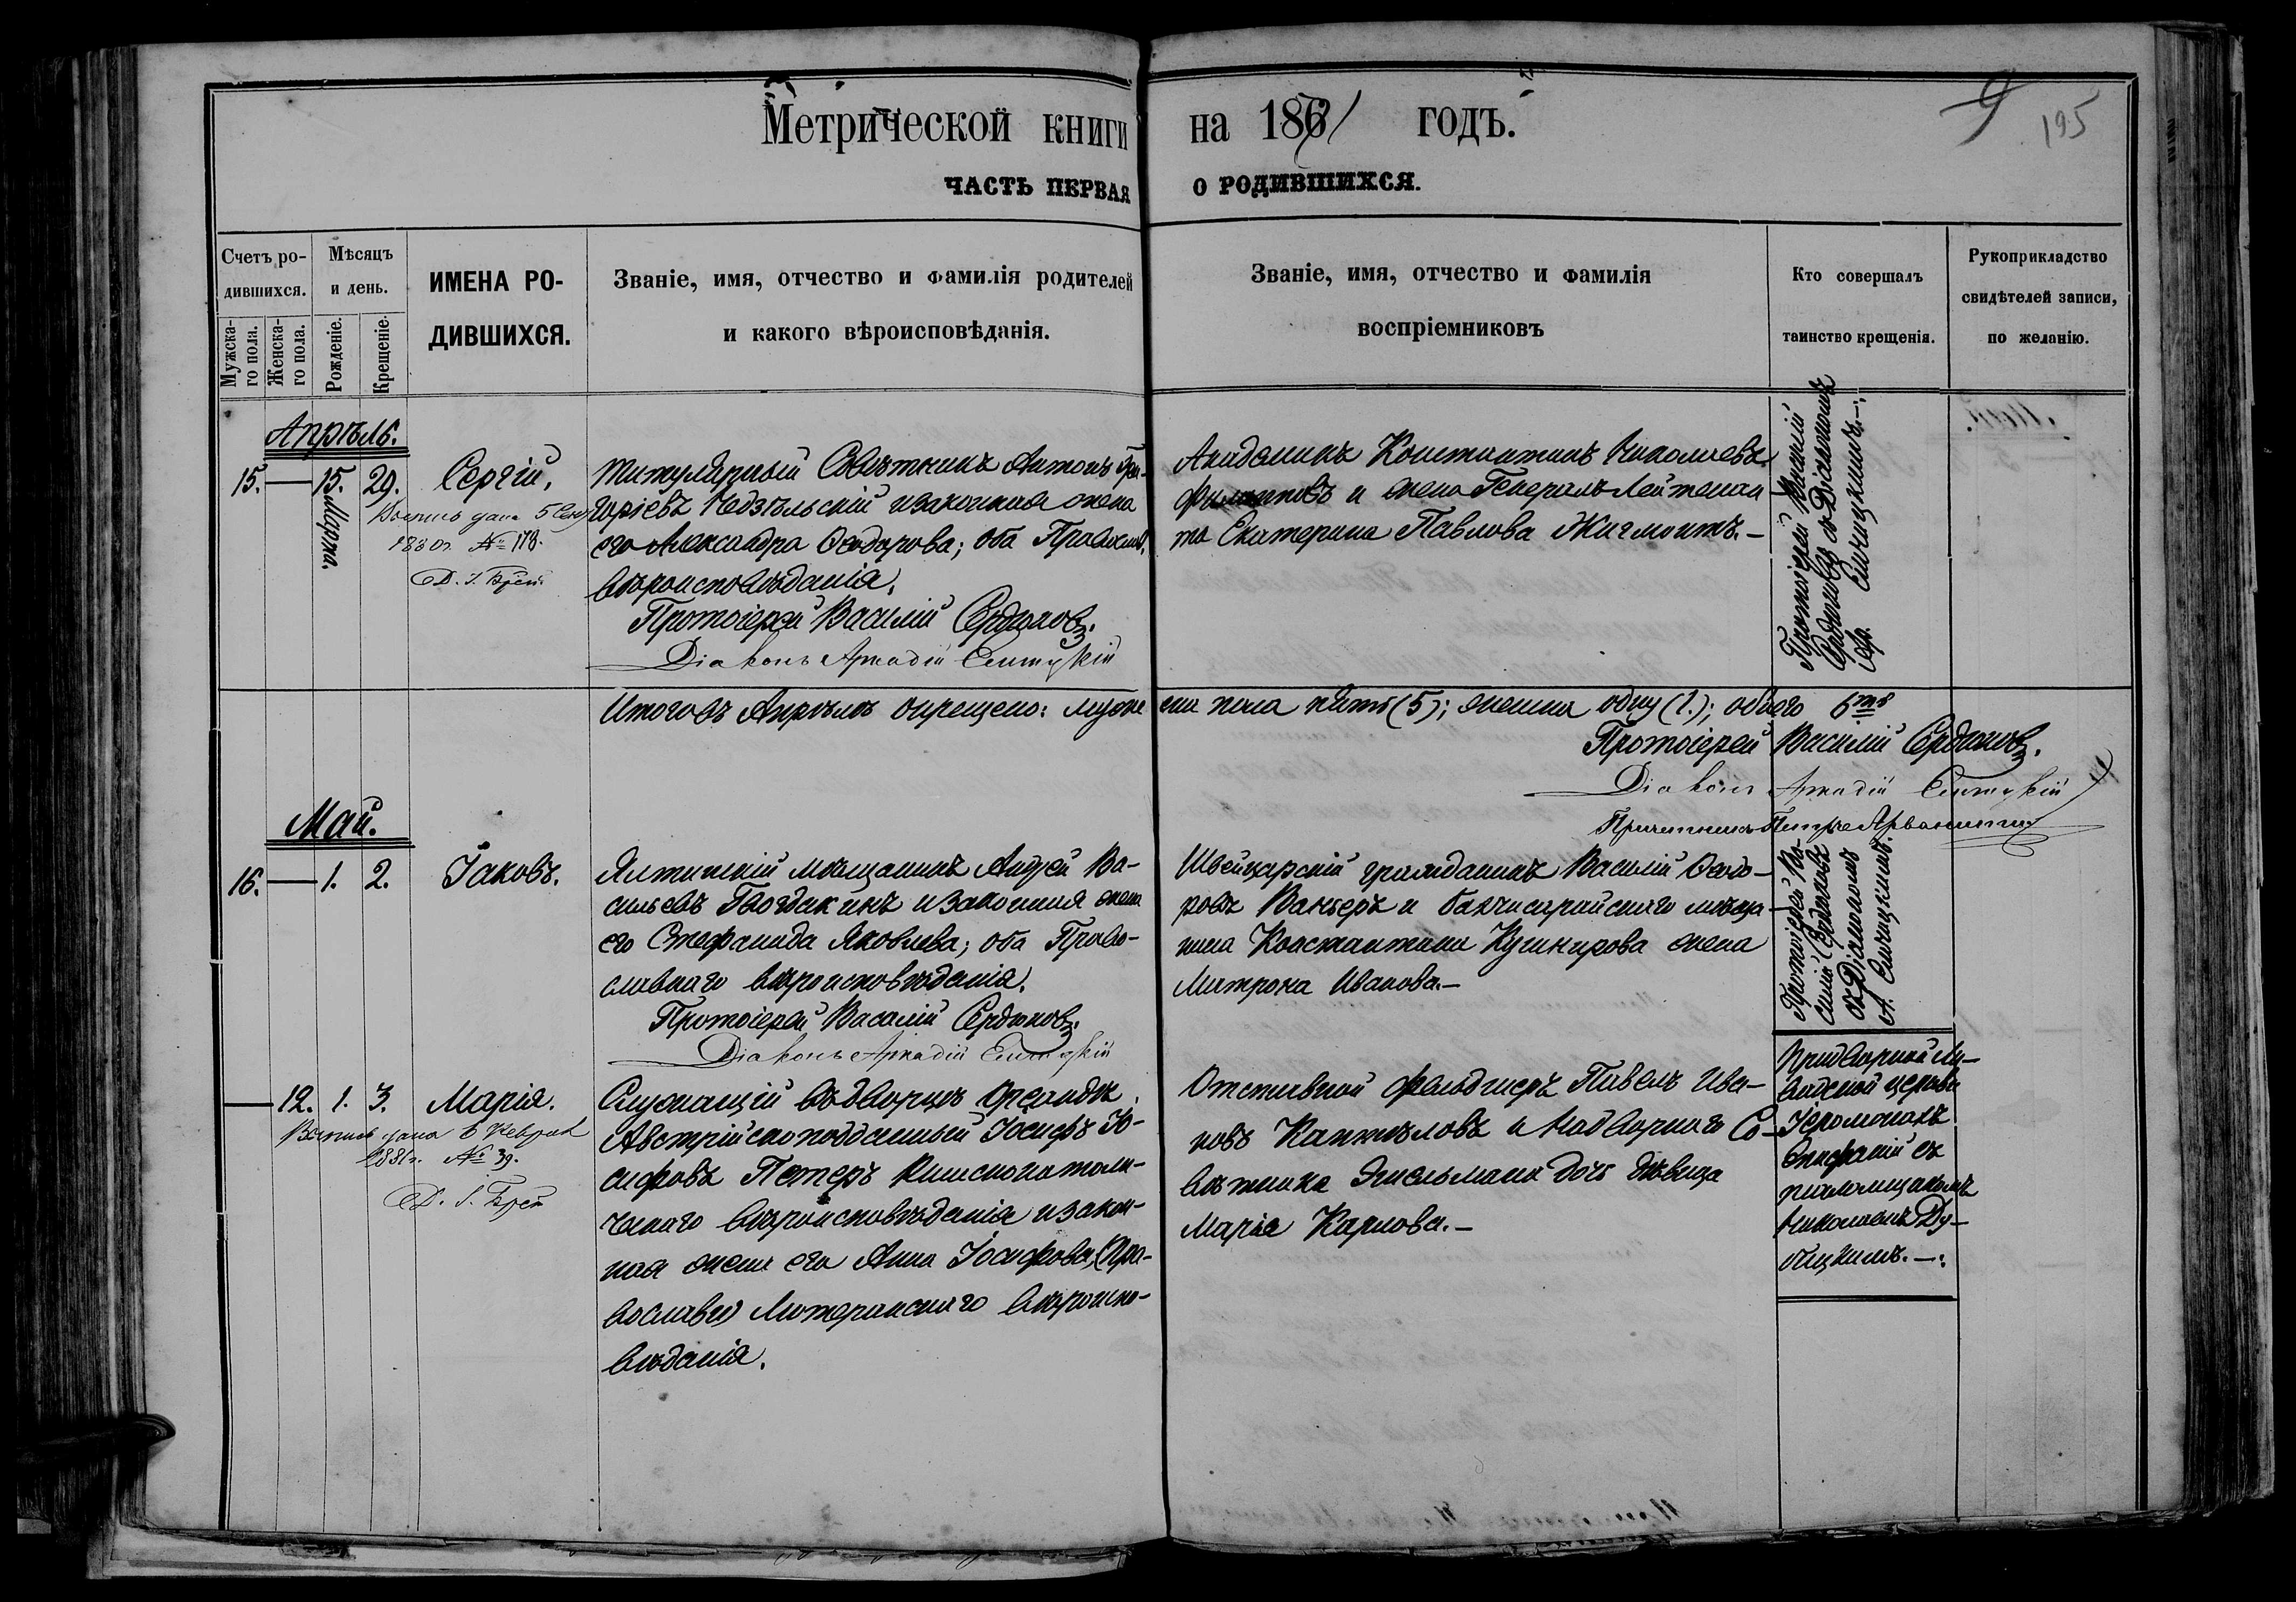 Метрической книги на 1871 годъ.
9 195
ЧАСТЬ ПЕРВАЯ О РОДИВШИХСЯ.
Счетъ ро-
дившихся.
Мужска-
го пола.
Женска-
го пола.
Мѣсяцъ
и день.
Рожденіе.
Крещеніе.
ИМЕНА РО-
ДИВШИХСЯ.
Званіе, имя, отчество и фамилія родителей
и какого вѣроисповѣданія.
Званіе, имя, отчество и фамилія
воспріемниковъ
Кто совершалъ
таинство крещенія.
Рукоприкладство
свидѣтелей записи,
по желанію.
Апрѣль.
15. — 15. 29. Сергій.
Марта.
Выпись дана 5 Сент
1880 г. № 178.
Титулярный Совѣтникъ Антонъ Гри-
горіевъ Недзѣльскій и законная жена
его Александра Ѳеодорова; оба Православ.
вѣроисповѣданія.
Протоіерей Василій Сердюковъ.
Діаконъ Аркадій
Академикъ Константинъ Николаевъ
Филипповъ и жена Генералъ Лейтенан
та Екатерина Павлова Жигмонтъ. —
Протоіерей Василій
Сердюковъ съ Діакономъ
Итого въ Апрѣлѣ окрещено: муже
ска пола пять (5); женска одну (1.); обоего 6ть
Протоіерей Василій Сердюковъ.
Діаконъ Аркадій
Причетникъ Петръ
Май.
16. — 1. 2. Іаковъ.
Ялтинскій мѣщанинъ Андрей Ва-
сильевъ Гвоздикинъ и законная жена
его Стефанида Яковлева; оба Право-
славнаго вѣроисповѣданія.
Протоіерей Василій Сердюковъ.
Діаконъ Аркадій
Швейцарскій гражданинъ Василій Ѳеодо-
ровъ Вагнеръ и бахчисарайскаго мѣща-
нина Константина Кушнирова жена
Матрона Иванова. —
Протоіерей Ва-
силій Сердюковъ
съ Діакономъ
— 12. 1. 3. Марія.
Выпись дана 6 Февраля
1881 г. № 39.
Служащій въ дворцѣ Ореандѣ
Австрійскоподданный Іосифъ Іо-
сифовъ Петеръ Римскокатоли-
ческаго вѣроисповѣданія и закон-
ная жена его Анна Іосифова, (Пра-
вославія) Лютеранскаго вѣроиспо-
вѣданія.
Отставной фельдшеръ Павелъ Ива-
новъ и Надворнаго Со-
вѣтника дочь дѣвица
Марія Карлова. —
Придворной Ли-
вадской церкви
Іеромонахъ
Епифаній съ
псаломщикомъ
Николаемъ Ду-
бицкимъ. —